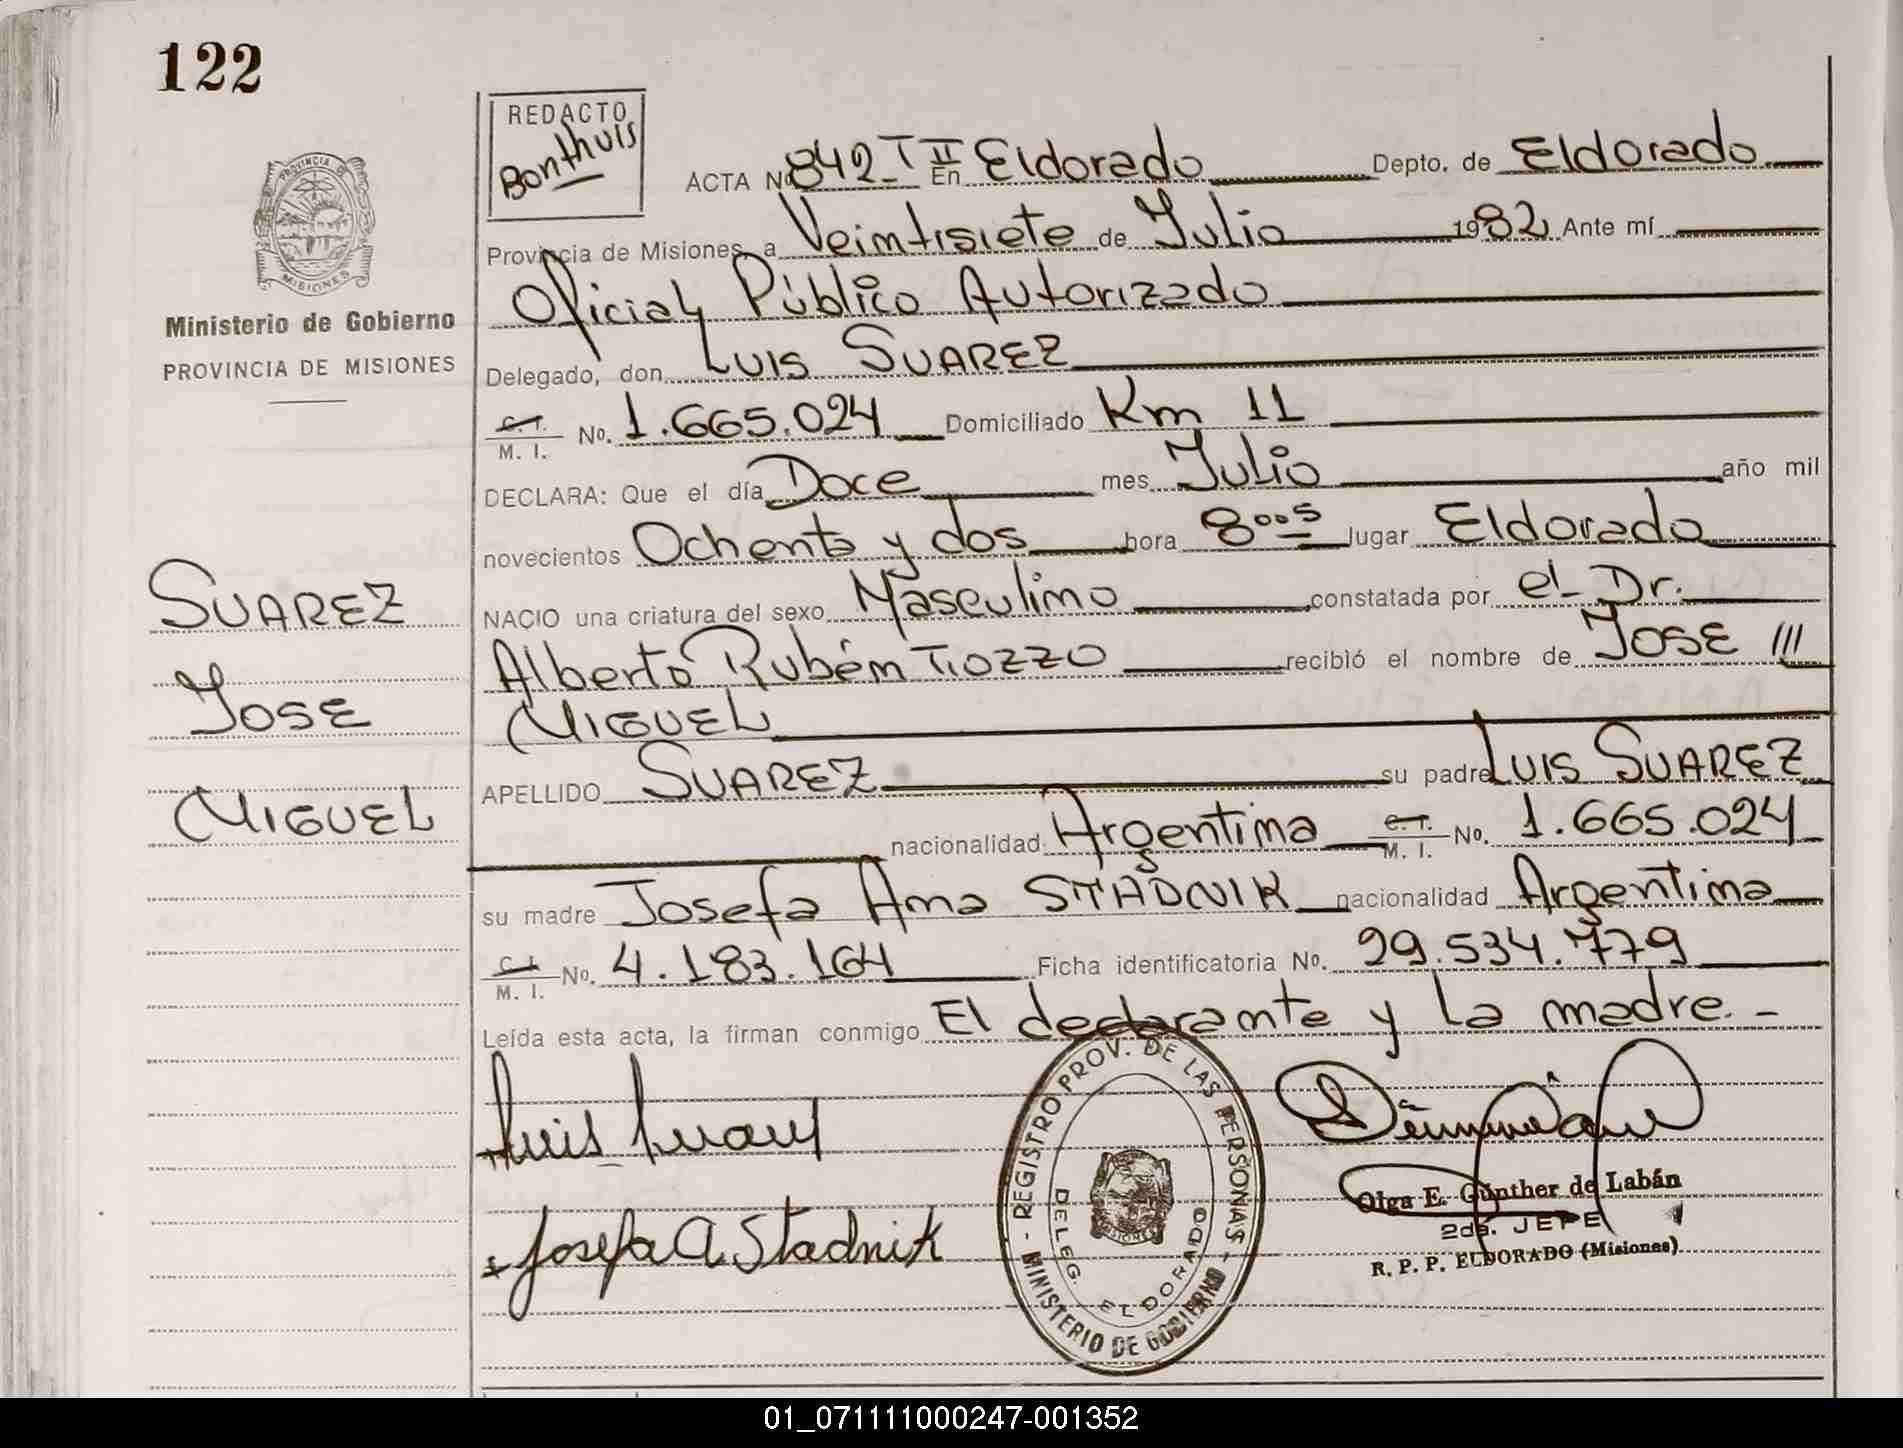 122
REDACTO
Bonthuis
ACTA Nº 842 T II En Eldorado Depto. de Eldorado
Provincia de Misiones, a Veintisiete de Julio 1982 Ante mí
Oficial Público Autorizado
Delegado, don LUIS SUAREZ
C. I.
M. I. No. 1.665.024 Domiciliado Km 11
DECLARA: Que el día Doce mes Julio año mil
novecientos Ochenta y dos hora 8ººˢ lugar Eldorado
NACIO una criatura del sexo Masculino constatada por el Dr.
Alberto Rubén TIOZZO recibió el nombre de JOSE
MIGUEL
APELLIDO SUAREZ su padre LUIS SUAREZ
nacionalidad Argentina C. I. M. I. No. 1.665.024
su madre Josefa Ana STADNIK nacionalidad Argentina
C. I.
M. I. No. 4.183.164 Ficha identificatoria No. 29.534.779
Leída esta acta, la firman conmigo El declarante y la madre.-
Luis Suarez
Josefa A Stadnik
REGISTRO PROV. DE LAS PERSONAS - MINISTERIO DE GOBIERNO -
DELEG. ELDORADO
MISIONES
Olga E. Günther de Labán
2da. JEFE
R. P. P. ELDORADO (Misiones)
PROVINCIA DE
MISIONES
Ministerio de Gobierno
PROVINCIA DE MISIONES
SUAREZ
JOSE
MIGUEL
01_071111000247-001352